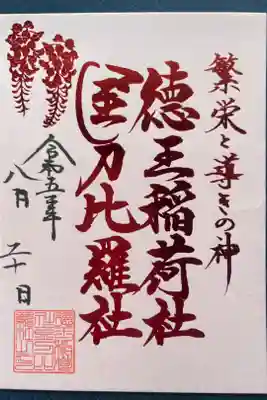 繁栄と導きの神
徳王稲荷社
金刀比羅社
令和五年
八月二十日